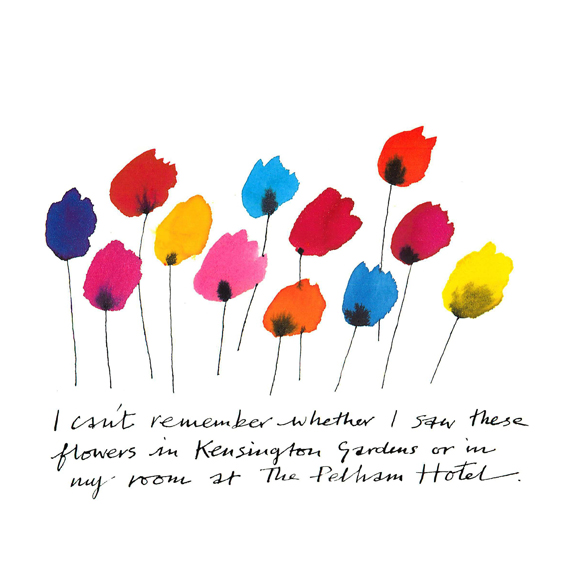 I can't remember whether I saw these
flowers in Kensington Gardens or in
my room at The Pelham Hotel.